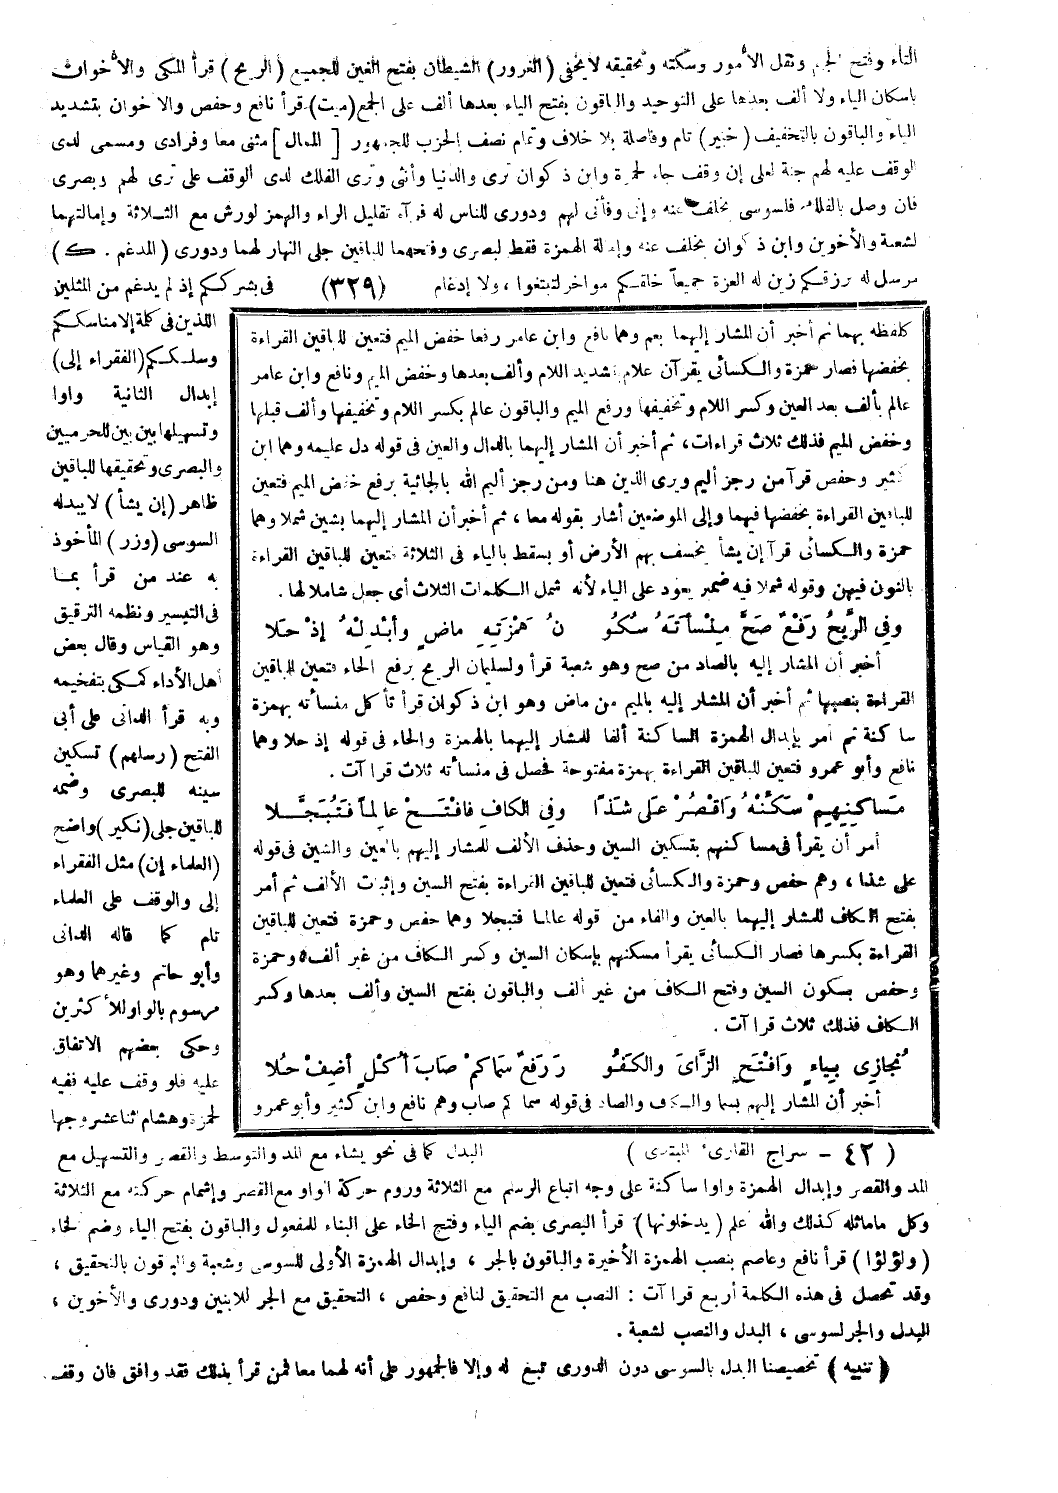 التاء وفتح الجيم ونقل الأمور وسكته وتحقيقه لا يخفى (الغرور) الشيطان بفتح الغين للجميع (الريح) قرأ المكى والأخوان
باسكان الياء ولا ألف بعدها على التوحيد والباقون بفتح الياء بعدها ألف على الجمع (ميت) قرأ نافع وحفص والاخوان بتشديد
الياء والباقون بالتخفيف (خبير) تام وفاصلة بلا خلاف وتمام نصف الحزب للجمهور [الممال] مثنى معا وفرادى ومسمى لدى
الوقف عليه لهم جنة لعلى إن وقف جاء لحمزة وابن ذكوان ترى والدنيا وأنثى وترى الفلك لدى الوقف على ترى لهم وبصرى
فان وصل بالفلك فلسوسى بخلف عنه وإنى وفأنى لهم ودورى للناس له فرآه تقليل الراء والهمز لورش مع الثلاثة وإمالتهما
لشعبة والأخوين وابن ذكوان بخلف عنه وإمالة الهمزة فقط لبصرى وفتحهما للباقين جلى النهار لهما ودورى (المدغم . ك)
مرسل له يرزقكم زين له العزة جميعاً خلقكم مواخر لتبتغوا ، ولا إدغام (٣٢٩) فى بشرككم إذ لم يدغم من المثلين
اللذين فى كلمة إلا مناسككم
وسلككم (الفقراء إلى)
إبدال الثانية واوا
وتسهيلها بين بين للحرميين
والبصرى وتحقيقها للباقين
ظاهر (إن يشأ) لا يبدله
السوسى (وزر) المأخوذ
به عند من قرأ بما
فى التيسير ونظمه الترقيق
وهو القياس وقال بعض
أهل الأداء كمكى بتفخيمه
وبه قرأ الدانى على أبى
الفتح (رسلهم) تسكين
سينه للبصرى وضمه
للباقين جلى (نكير) واضح
(العلماء إن) مثل الفقراء
إلى والوقف على العلماء
تام كما قاله الدانى
وأبو حاتم وغيرهما وهو
مرسوم بالواو للأكثرين
وحكى بعضهم الاتفاق
عليه فلو وقف عليه ففيه
لحمزة وهشام اثنا عشر وجها
كلفظه بهما ثم أخبر أن المشار إليهما بعم وهما نافع وابن عامر رفعا خفض الميم فتعين للباقين القراءة
بخفضها فصار حمزة والكسائى يقرآن علام بتشديد اللام وألف بعدها وخفض الميم ونافع وابن عامر
عالم بألف بعد العين وكسر اللام وتخفيفها ورفع الميم والباقون عالم بكسر اللام وتخفيفها وألف قبلها
وخفض الميم فذلك ثلاث قراءات ، ثم أخبر أن المشار إليهما بالدال والعين فى قوله دل عليمه وهما ابن
كثير وحفص قرآ من رجز أليم ويرى الذين هنا ومن رجز أليم الله بالجاثية برفع خفض الميم فتعين
للباقين القراءة بخفضها فيهما وإلى الموضعين أشار بقوله معا ، ثم أخبر أن المشار إليهما بشين شملا وهما
حمزة والكسائى قرآ إن يشأ يخسف بهم الأرض أو يسقط بالياء فى الثلاثة فتعين للباقين القراءة
بالنون فيهن وقوله شملا فيه ضمير يعود على الياء لأنه شمل الكلمات الثلاث أى جعل شاملا لها .
وفي الرِّيحُ رَفْعٌ صَحَّ مِنْسَأَتَهُ سُكُو نُ هَمْزَتِهِ مَاضٍ وأَبْدِلْهُ إذْ حَلَا
أخبر أن المشار إليه بالصاد من صح وهو شعبة قرأ ولسليمان الريح برفع الحاء فتعين للباقين
القراءة بنصبها ثم أخبر أن المشار إليه بالميم من ماض وهو ابن ذكوان قرأ تأكل منسأته بهمزة
ساكنة ثم أمر بإبدال الهمزة الساكنة ألفا للمشار إليهما بالهمزة والحاء فى قوله إذ حلا وهما
نافع وأبو عمرو فتعين للباقين القراءة بهمزة مفتوحة فحصل فى منسأته ثلاث قراآت .
مَسَاكِنِهِمْ سَكِّنْهُ وَاقْصُرْ عَلَى شَذًا وفي الكافِ فَافْتَحْ عالِماً فَتُبَجَّلا
أمر أن يقرأ فى مساكنهم بتسكين السين وحذف الألف للمشار إليهم بالعين والشين فى قوله
على شذا ، وهم حفص وحمزة والكسائى فتعين للباقين القراءة بفتح السين وإثبات الألف ثم أمر
بفتح الكاف للمشار إليهما بالعين والفاء من قوله عالما فتبجلا وهما حفص وحمزة فتعين للباقين
القراءة بكسرها فصار الكسائى يقرأ مسكنهم بإسكان السين وكسر الكاف من غير ألف ، وحمزة
وحفص بسكون السين وفتح الكاف من غير ألف والباقون بفتح السين وألف بعدها وكسر
الكاف فذلك ثلاث قراآت .
نُجَازِي بِيَاءٍ وَافْتَحِ الزَّايَ والكَفُو رَ رَفْعٌ سَمَا كمْ صَابَ أُكْلٍ أضِفْ حُلا
أخبر أن المشار إليهم بسما والكاف والصاد فى قوله سما كم صاب وهم نافع وابن كثير وأبو عمرو
(٤٢ - سراج القارئ المبتدى) البدل كما فى نحو يشاء مع المد والتوسط والقصر والتسهيل مع
المد والقصر وإبدال الهمزة واوا ساكنة على وجه اتباع الرسم مع الثلاثة وروم حركة الواو مع القصر وإشمام حركته مع الثلاثة
وكل ماماثله كذلك والله أعلم (يدخلونها) قرأ البصرى بضم الياء وفتح الخاء على البناء للمفعول والباقون بفتح الياء وضم الخاء
(ولؤلؤا) قرأ نافع وعاصم بنصب الهمزة الأخيرة والباقون بالجر ، وإبدال الهمزة الأولى للسوسى وشعبة والباقون بالتحقيق ،
وقد تحصل فى هذه الكلمة أربع قراآت : النصب مع التحقيق لنافع وحفص ، التحقيق مع الجر للابنين ودورى والأخوين ،
البدل والجر لسوسى ، البدل والنصب لشعبة .
(تنبيه) تخصيصنا البدل بالسوسى دون الدورى تبع له وإلا فالجمهور على أنه لهما معا فمن قرأ بذلك فقد وافق فان وقف